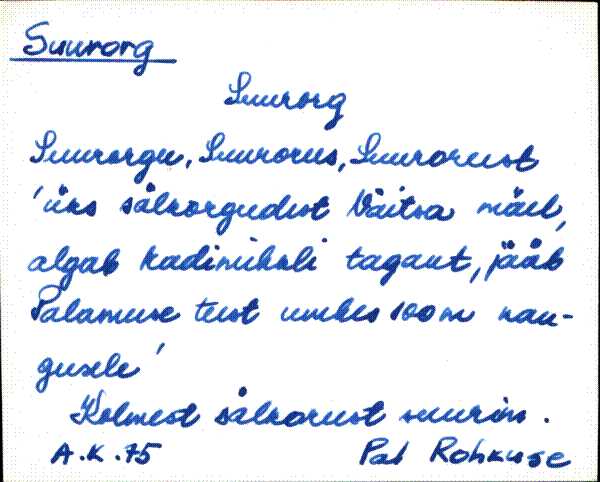 Suurorg
Suurorg
Suurorgu, Suurorus, Suurorust
'üks sälkorgudest Väitsa mäel,
algab kadinikuli tagant, jääb
Palamuse teest umbes 100 m kau-
gusele'
Kolmest sälkorust suurim.
A.K.75 Pal Rohkuse